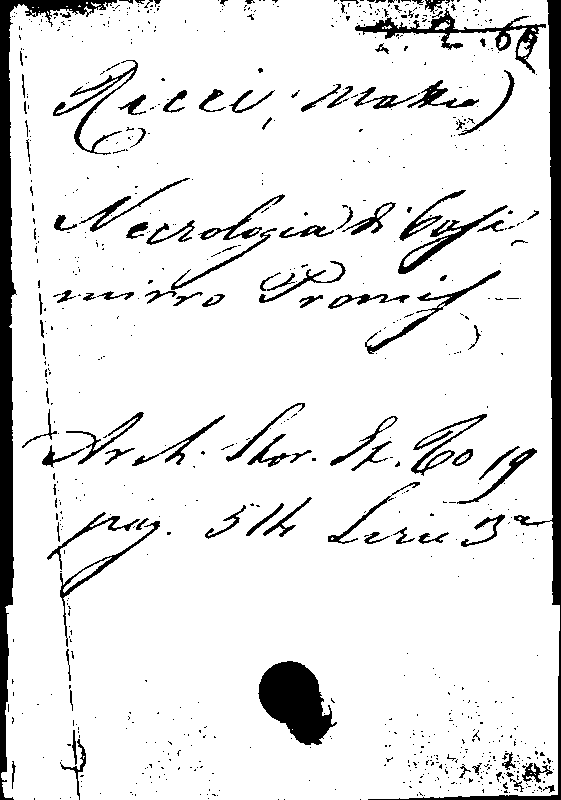 2. 2. 69
Ricci, Matteo
Necrologia di Casi-
mirro Promis
Arch. Stor. It. To 19
pag. 514 Serie 3a